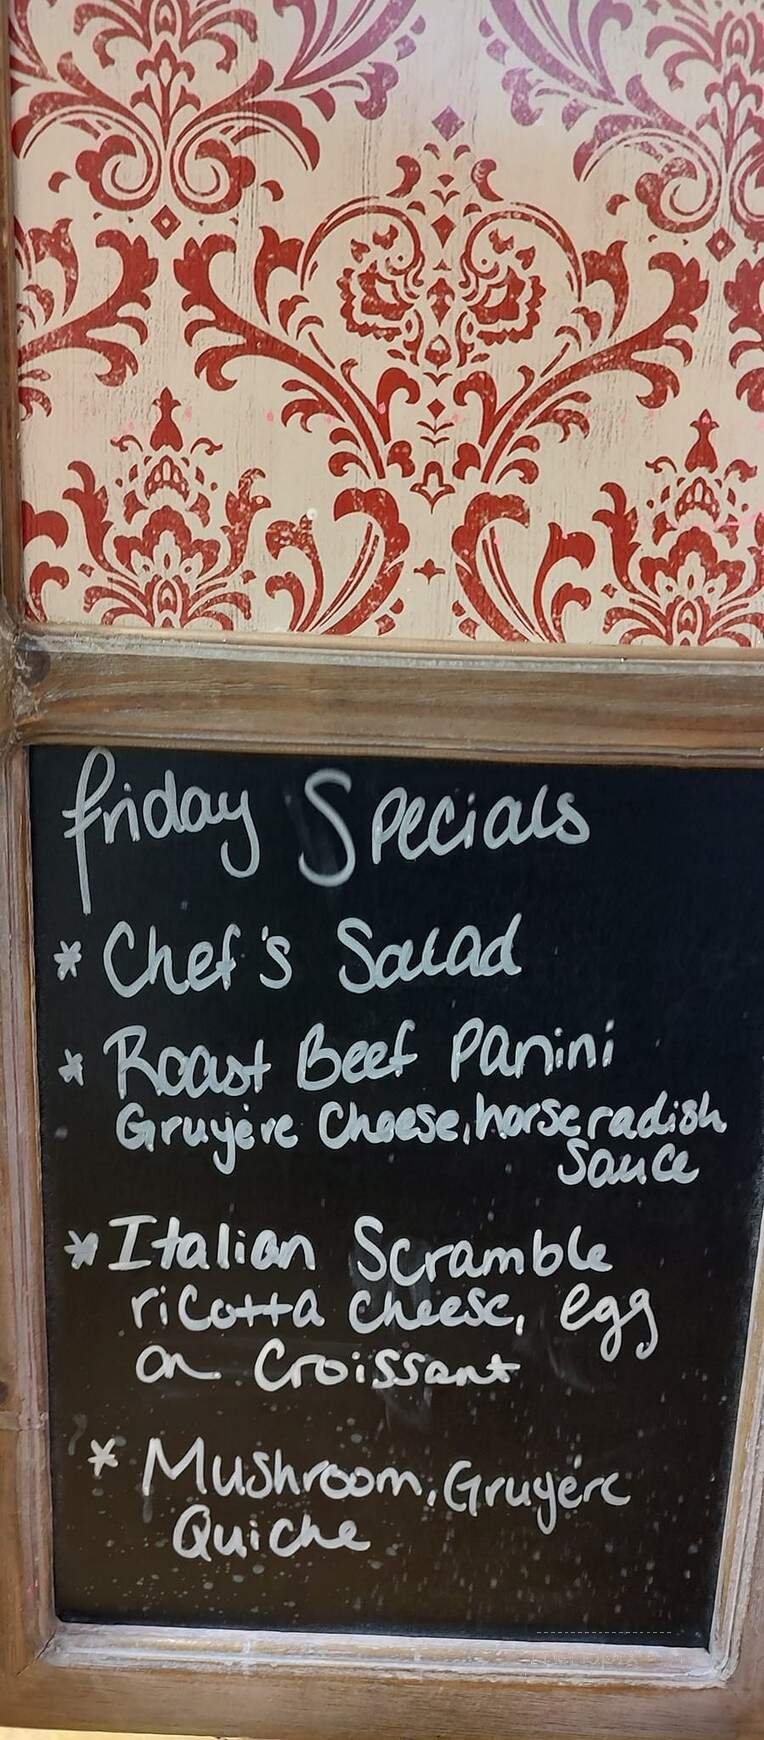 friday Specials
* Chef's Salad
* Roast Beef Panini
Gruyère Cheese, horseradish
Sauce
* Italian Scramble
ricotta cheese, egg
on Croissant
* Mushroom, Gruyère
Quiche